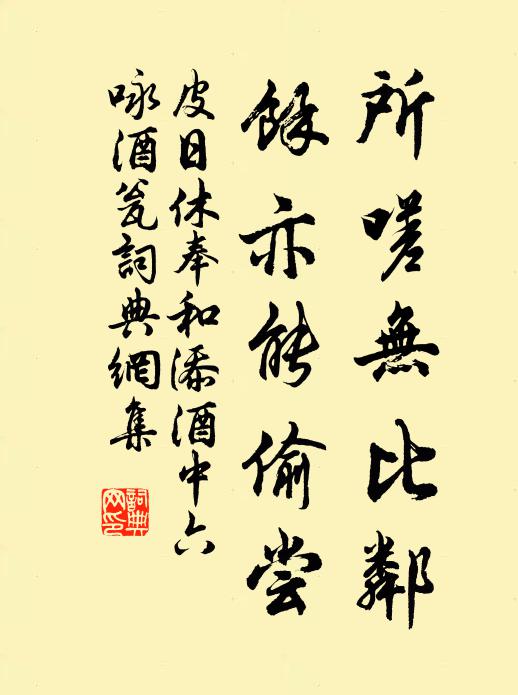 所嗟無比鄰
餘亦能偷嘗
皮日休奉和添酒中六
咏酒瓮詞典網集
詞典網印